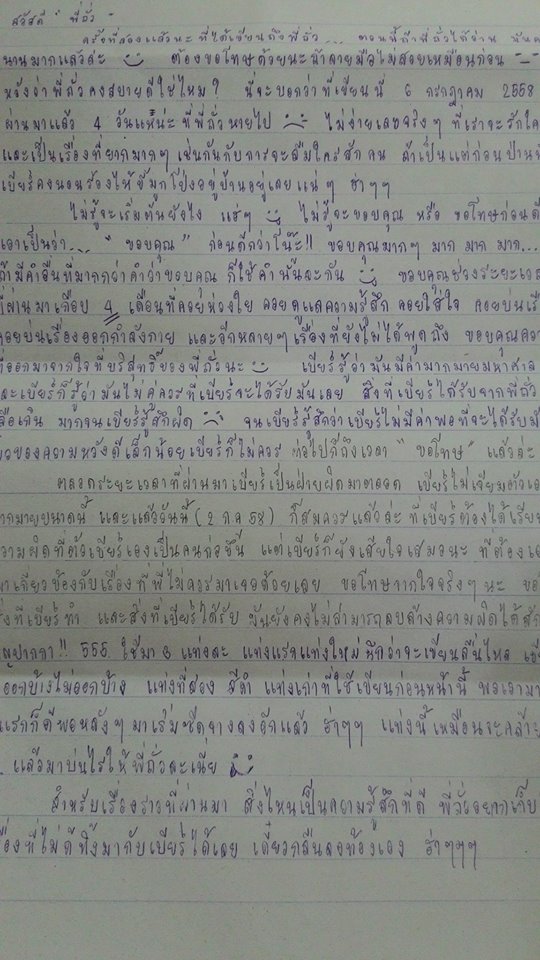 สวัสดี " พี่ถั่ว "
ครั้งที่สองแล้วนะ ที่ได้เขียนถึงพี่ถั่ว ... ตอนนี้ถ้าพี่ถั่วได้อ่าน
นานมากแล้วล่ะ ต้องขอโทษด้วยนะถ้าลายมือไม่สวยเหมือนก่อน
หวังว่าพี่ถั่วคงสบายดีใช่ไหม ? นี่จะบอกว่าที่เขียนนี่ 6 กรกฎาคม 2558
ผ่านมาแล้ว 4 วันแห้น่ะ ที่พี่ถั่วหายไป ไม่ง่ายเลยจริงๆ ที่เราจะรักใคร
และเป็นเรื่องที่ยากมากๆ เช่นกันกับการจะลืมใครสักคน ถ้าเป็นแต่ก่อนป่านนี้
เบียร์คงนอนร้องไห้ขี้มูกโป่งอยู่บ้านอยู่เลยแน่ๆ ฮ่าๆๆ
ไม่รู้จะเริ่มต้นยังไง แฮ่ๆ ไม่รู้จะขอบคุณ หรือ ขอโทษก่อนดี
เอาเป็นว่า... " ขอบคุณ " ก่อนดีกว่าโน๊ะ!! ขอบคุณมากๆ มาก มาก มาก...
ถ้ามีคำอื่นที่มากกว่าคำว่าขอบคุณ ก็ใช้คำนั้นละกัน ขอบคุณช่วงระยะเวลา
ที่ผ่านมาเกือบ 4 เดือนที่คอยห่วงใย คอยดูแลความรู้สึก คอยใส่ใจ คอยบ่นเรื่อง
คอยบ่นเรื่องออกกำลังกาย และอีกหลายๆเรื่องที่ยังไม่ได้พูดถึง ขอบคุณความ
ที่ออกมาจากใจที่บริสุทธิ์ของพี่ถั่วนะ เบียร์รู้ว่ามันมีค่ามากมายมหาศาล
และเบียร์ก็รู้ว่ามันไม่คู่ควรที่เบียร์จะได้รับมันเลย สิ่งที่เบียร์ได้รับจากพี่ถั่ว
เหลือเกิน มากจนเบียร์รู้สึกผิด จนเบียร์รู้สึกว่าเบียร์ไม่มีค่าพอที่จะได้รับมัน
ของความหวังดีเล็กน้อยเบียร์ก็ไม่ควร ต่อไปก็ถึงเวลา " ขอโทษ " แล้วล่ะ
ตลอดระยะเวลาที่ผ่านมาเบียร์เป็นฝ่ายผิดมาตลอด เบียร์ไม่เจียมตัวเอง
มากมายขนาดนี้ และแล้ววันนี้ (2 กค 58) ก็สมควรแล้วล่ะ ที่เบียร์ต้องได้เรียน
ความผิดที่ตัวเบียร์เองเป็นคนก่อขึ้น แต่เบียร์ก็ยังเสียใจเสมอนะ ที่ต้องเอา
มาเกี่ยวข้องกับเรื่องที่พี่ไม่ควรมาเจอด้วยเลย ขอโทษจากใจจริงๆนะ ขอ
สิ่งที่เบียร์ทำ และสิ่งที่เบียร์ได้รับ มันยังคงไม่สามารถลบล้างความผิดได้
ปากกา !! 555 ใช้มา 3 แท่งละ แท่งแรกแท่งใหม่ นึกว่าจะเขียนลื่นไหล
ออกบ้างไม่ออกบ้าง แท่งที่สอง สีดำ แท่งเก่าที่ใช้เขียนก่อนหน้านี้ พอเอามา
แรกก็ดีพอหลังๆ มาเริ่มซีดจางลงอีกแล้ว ฮ่าๆๆ แท่งนี้เหมือนจะคล้าย
แล้วมาบ่นไรให้พี่ถั่วละเนี่ย
สำหรับเรื่องราวที่ผ่านมา สิ่งไหนเป็นความรู้สึกที่ดี พี่ถั่วอยากเก็บ
เรื่องที่ไม่ดีทิ้งมากับเบียร์ได้เลย เดี๋ยวกลืนลงท้องเอง ฮ่าๆๆๆ